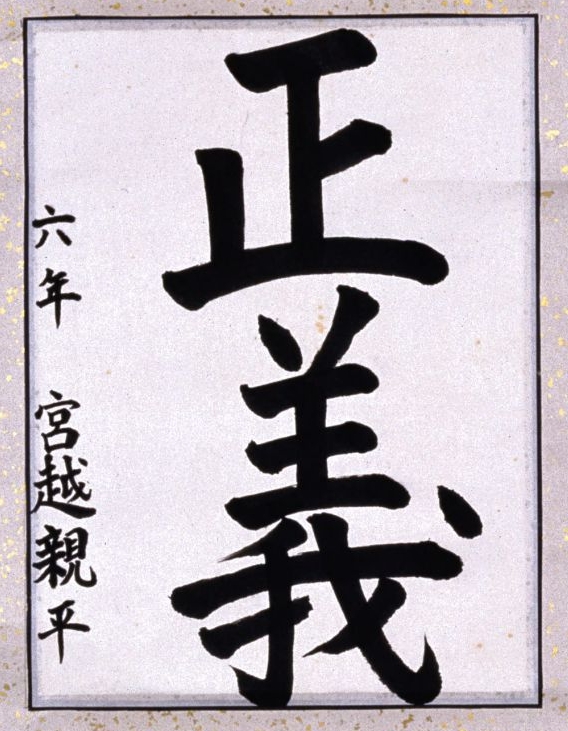 正義
六年 宮越親平